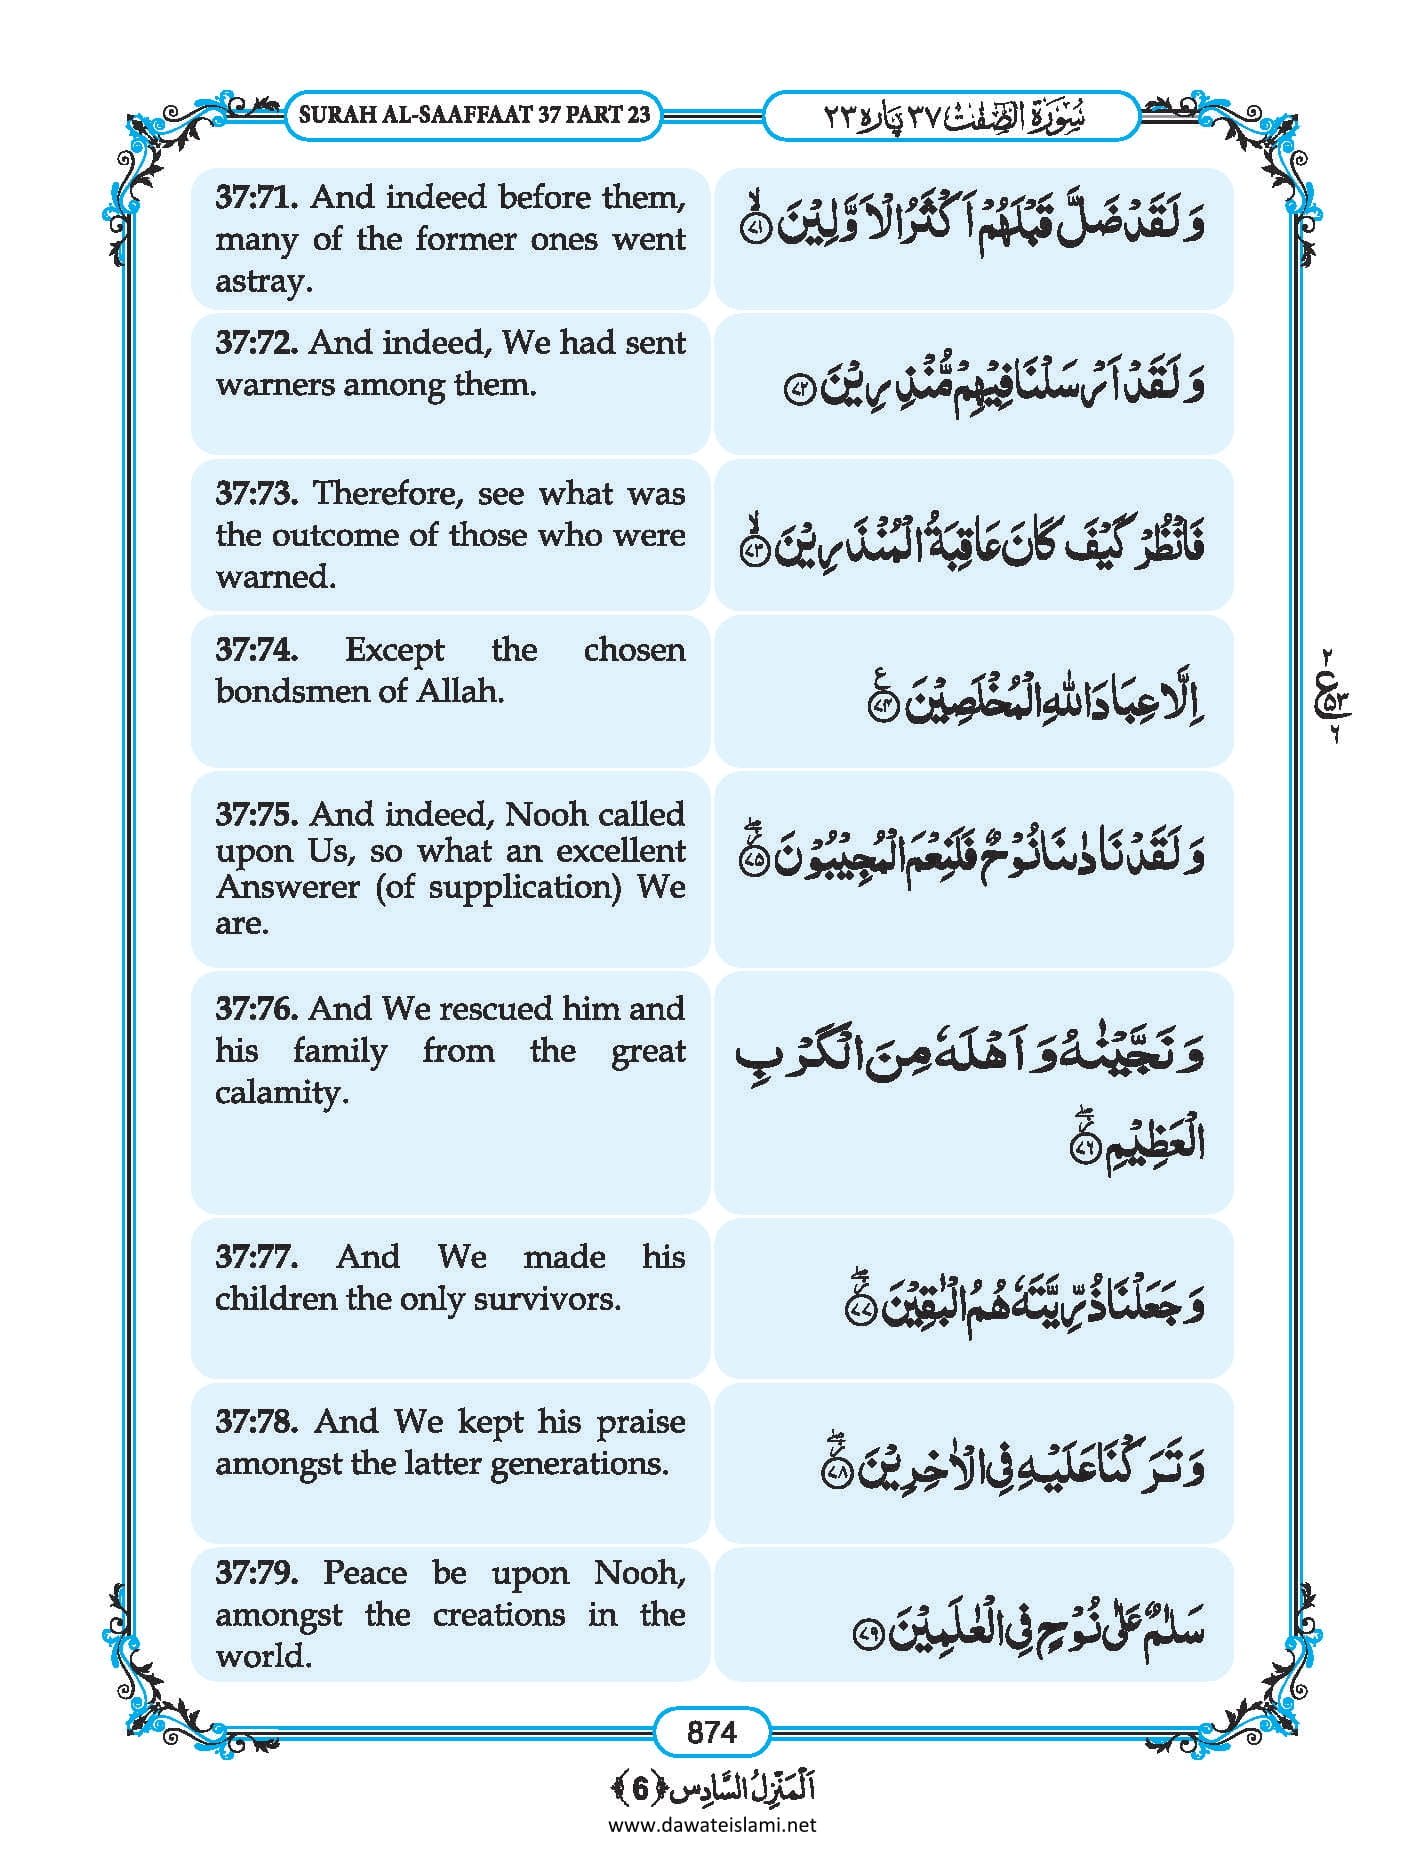 SURAH AL-SAAFFAAT 37 PART 23
سُوْرَةُ الصّٰٓفّٰت ۳۷ پَارہ ۲۳
37:71. And indeed before them,
many of the former ones went
astray.
وَ لَقَدْ ضَلَّ قَبْلَهُمْ اَكْثَرُ الْاَوَّلِیْنَۙ ﴿۷۱﴾
37:72. And indeed, We had sent
warners among them.
وَ لَقَدْ اَرْسَلْنَا فِیْهِمْ مُّنْذِرِیْنَ ﴿۷۲﴾
37:73. Therefore, see what was
the outcome of those who were
warned.
فَانْظُرْ كَیْفَ كَانَ عَاقِبَةُ الْمُنْذَرِیْنَۙ ﴿۷۳﴾
37:74. Except the chosen
bondsmen of Allah.
اِلَّا عِبَادَ اللّٰهِ الْمُخْلَصِیْنَ۠ ﴿۷۴﴾
۲
ع
۵۳
۶
37:75. And indeed, Nooh called
upon Us, so what an excellent
Answerer (of supplication) We
are.
وَ لَقَدْ نَادٰىنَا نُوْحٌ فَلَنِعْمَ الْمُجِیْبُوْنَ٘ۖ ﴿۷۵﴾
37:76. And We rescued him and
his family from the great
calamity.
وَ نَجَّیْنٰهُ وَ اَهْلَهٗ مِنَ الْكَرْبِ
الْعَظِیْمِ٘ۖ ﴿۷۶﴾
37:77. And We made his
children the only survivors.
وَ جَعَلْنَا ذُرِّیَّتَهٗ هُمُ الْبٰقِیْنَ٘ۖ ﴿۷۷﴾
37:78. And We kept his praise
amongst the latter generations.
وَ تَرَكْنَا عَلَیْهِ فِی الْاٰخِرِیْنَ٘ۖ ﴿۷۸﴾
37:79. Peace be upon Nooh,
amongst the creations in the
world.
سَلٰمٌ عَلٰى نُوْحٍ فِی الْعٰلَمِیْنَ ﴿۷۹﴾
874
اَلْمَنْزِلُ السَّادِس ﴿6﴾
www.dawateislami.net